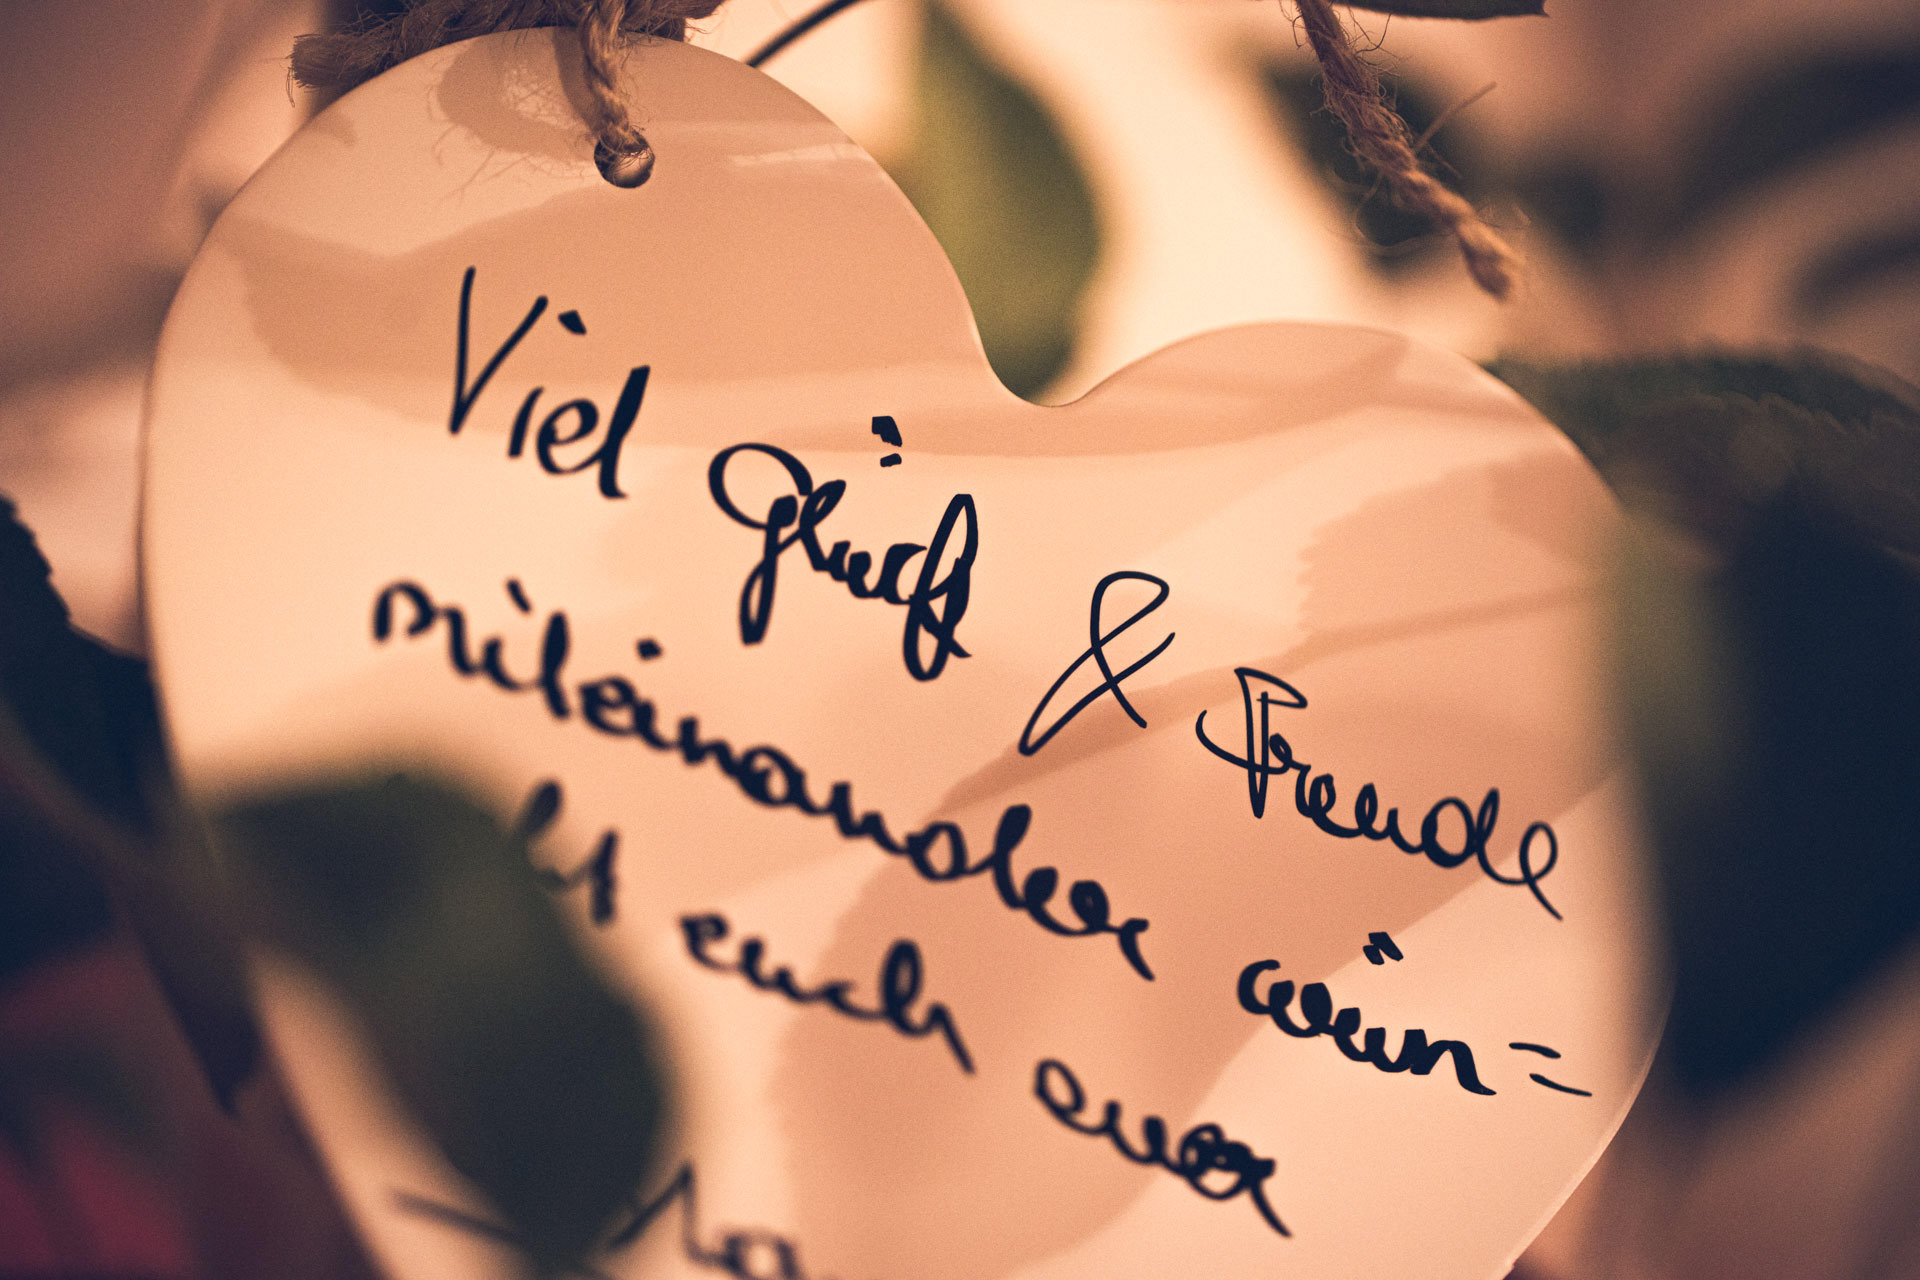 Viel Glück & Freude
miteinander wün=
scht euch euer